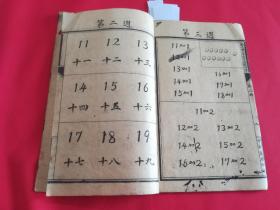 第二週
11 12 13
十一 十二 十三
14 15 16
十四 十五 十六
17 18 19
十七 十八 十九
第三週
11∞1
12∞1
13∞1 16∞1
14∞1 17∞1
15∞1 18∞1
11∞2
12∞2 13∞2
14∞2 15∞2
16∞2 17∞2